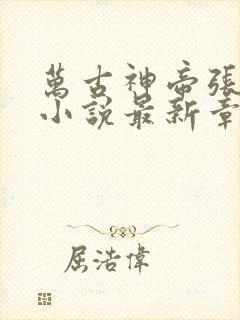 萬古神帝張
小說最新章
屈浩偉